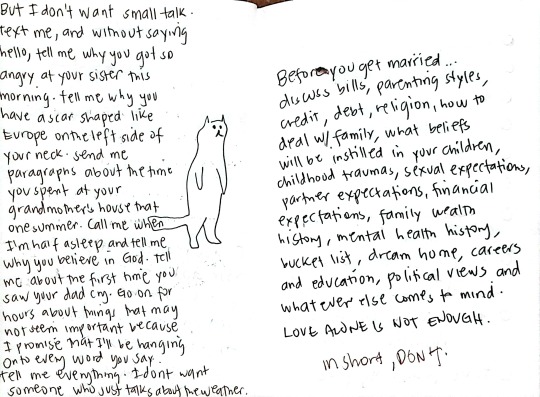 But I don't want small talk.
text me, and without saying
hello, tell me why you got so
angry at your sister this
morning. tell me why you
have a scar shaped like
Europe on the left side of
your neck. send me
paragraphs about the time
you spent at your
grandmother's house that
one summer. Call me when
I'm half asleep and tell me
why you believe in God. tell
me about the first time you
saw your dad cry. Go on for
hours about things that may
not seem important because
I promise that I'll be hanging
onto every word you say.
tell me everything. I dont want
someone who just talks about the weather.
Before you get married...
discuss bills, parenting styles,
credit, debt, religion, how to
deal w/ family, what beliefs
will be instilled in your children,
childhood traumas, sexual expectations,
partner expectations, financial
expectations, family wealth
history, mental health history,
bucket list, dream home, careers
and education, political views and
whatever else comes to mind.
LOVE ALONE IS NOT ENOUGH.
in short, DON'T.